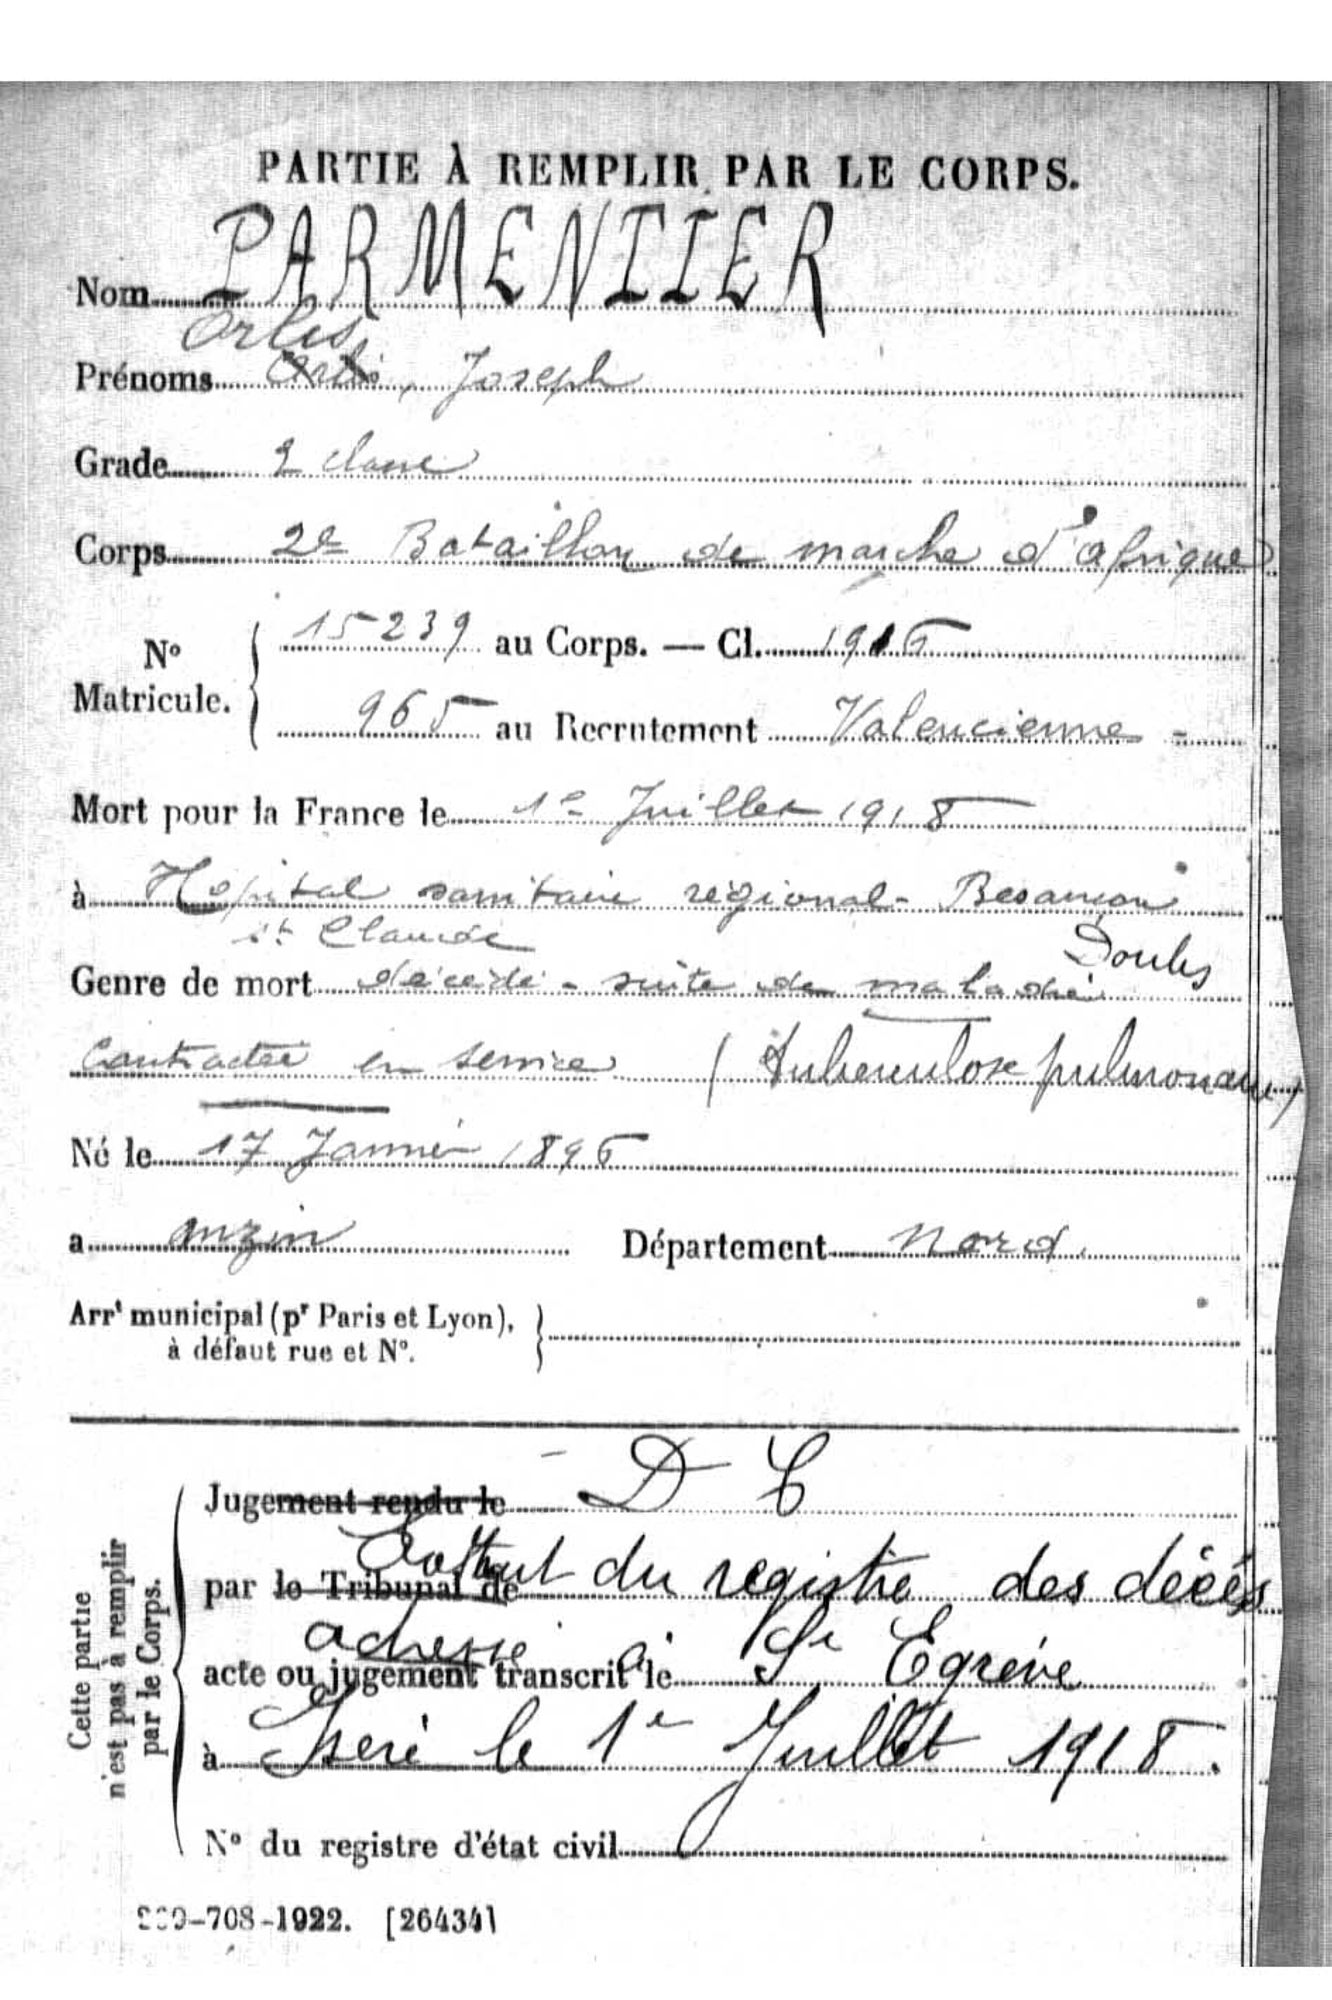 PARTIE À REMPLIR PAR LE CORPS.
Nom PARMENTIER
Orlis
Prénoms Arlis, Joseph
Grade 2 classe
Corps 2e Bataillon de marche d'afrique
No Matricule. 15239 au Corps. — Cl. 1916
965 au Recrutement Valencienne =
Mort pour la France le 1e Juillet 1918
à Hopital sanitaire régional - Besançon
st Claude Doubs
Genre de mort décédé - suite de maladie
Contractée en service (tuberculose pulmonaire)
Né le 17 Janvier 1896
a anzin Département Nord.
Arrt municipal (pr Paris et Lyon),
à défaut rue et No.
Cette partie
n'est pas à remplir
par le Corps.
Jugement rendu le D C
par le Tribunal de Extrait du registre des décés
adressé à
acte ou jugement transcrit le St Egrève
à Isère le 1e Juillet 1918.
No du registre d'état civil
-708-1922. [26434]